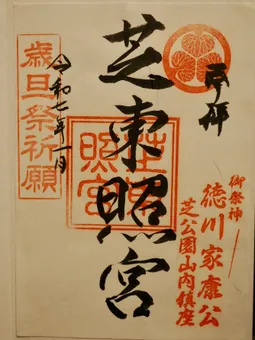 奉拝
御祭神
徳川家康公
芝公園山内鎮座
芝東照宮
令和七年一月
歳旦祭祈願